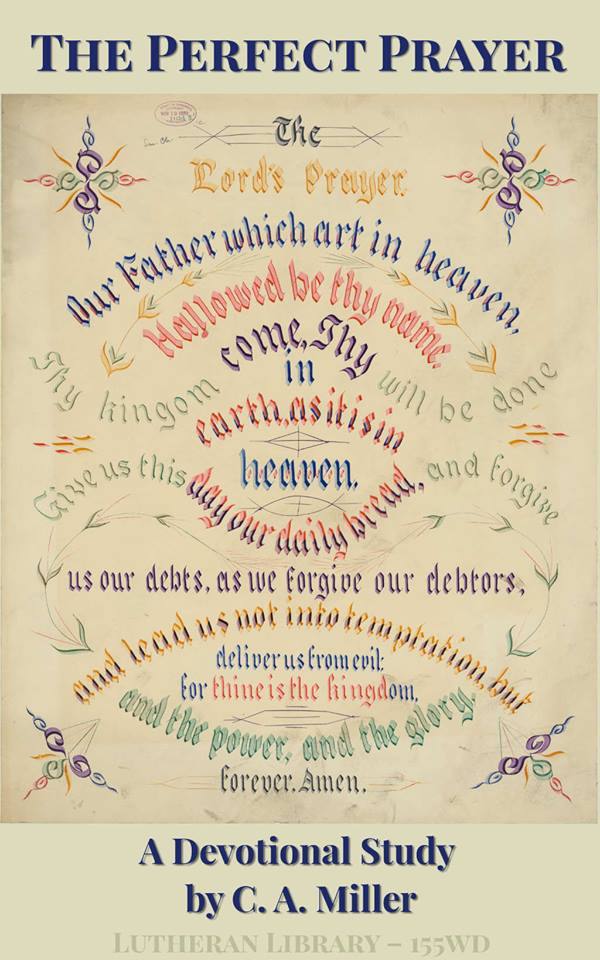 The Perfect Prayer
The
Lord's Prayer.
Our Father which art in heaven,
Hallowed be thy name.
Thy kingom come, Thy will be done
in
earth, as it is in
heaven.
Give us this day our daily bread, and forgive
us our debts, as we forgive our debtors,
and lead us not into temptation, but
deliver us from evil:
for thine is the kingdom,
and the power, and the glory.
forever. Amen.
A Devotional Study
by C. A. Miller
Lutheran Library – 155WD